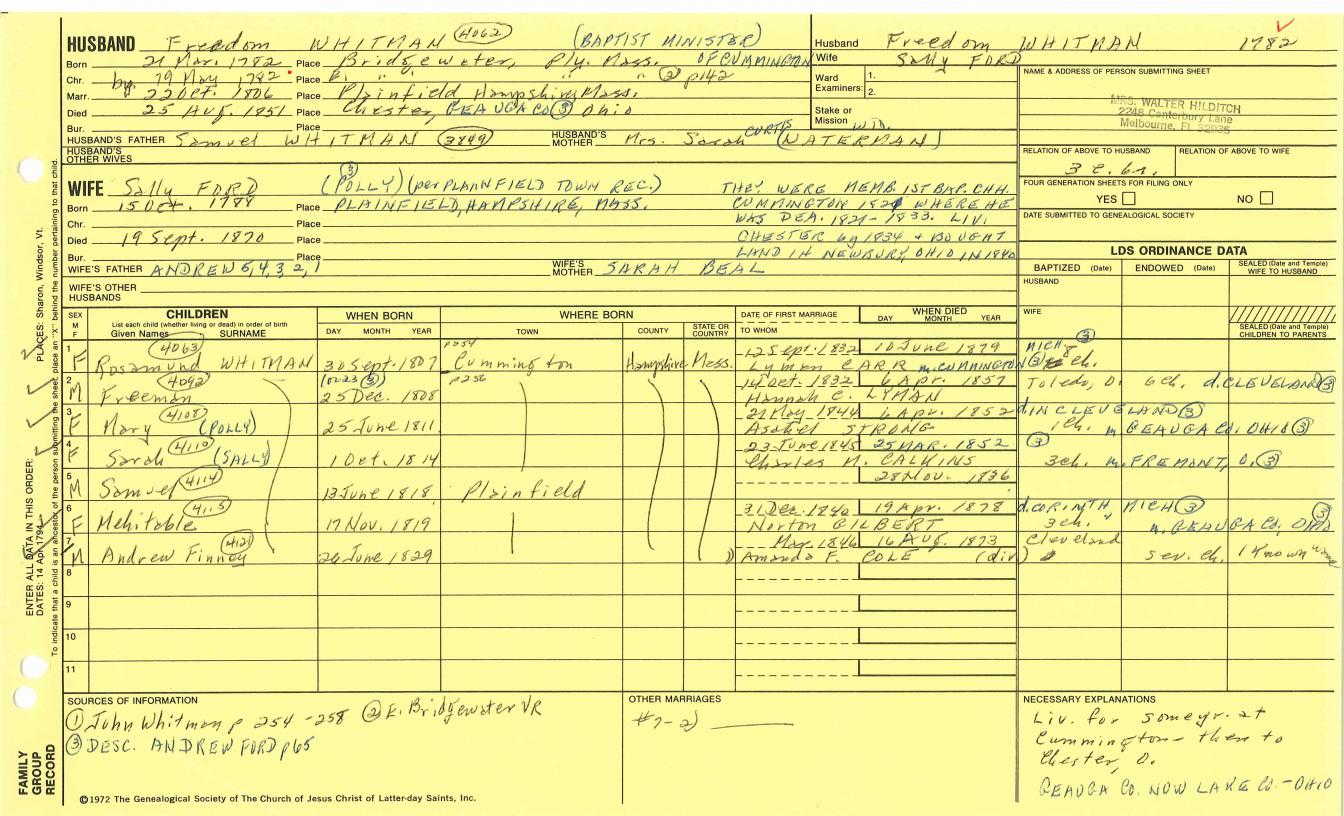 HUSBAND Freedom WHITMAN 4062 (BAPTIST MINISTER)
Born 21 Mar. 1782 Place Bridgewater, Ply. Mass. OF CUMMINGTON
Chr. bp. 19 May 1782 Place E. " " " " ② p142
Marr. 22 Oct. 1806 Place Plainfield Hampshire, Mass.
Died 25 Aug. 1851 Place Chester, GEAUGA CO ③ Ohio
Bur. Place
HUSBAND'S FATHER Samuel WHITMAN 3849 HUSBAND'S MOTHER Mrs. Sarah CURTIS (WATERMAN) WD.
HUSBAND'S OTHER WIVES
Husband Freedom WHITMAN 1782
Wife Sally FORD
Ward Examiners: 1.
2.
Stake or Mission
NAME & ADDRESS OF PERSON SUBMITTING SHEET
MRS. WALTER HILDITCH
2248 Canterbury Lane
Melbourne, FL 32935
RELATION OF ABOVE TO HUSBAND RELATION OF ABOVE TO WIFE
3 c. 6r.
FOUR GENERATION SHEETS FOR FILING ONLY
YES NO
DATE SUBMITTED TO GENEALOGICAL SOCIETY
WIFE Sally FORD ③ (POLLY) (per PLAINFIELD TOWN REC.)
Born 15 Oct. 1788 Place PLAINFIELD, HAMPSHIRE, MASS.
Chr. Place
Died 19 Sept. 1870 Place
Bur. Place
THEY WERE MEMB 1ST BAP. CHH.
CUMMINGTON 1821 WHERE HE
WAS DEA. 1821-1833. LIV.
CHESTER by 1834 & BOUGHT
LAND IN NEWBURY, OHIO IN 1840
WIFE'S FATHER ANDREW 5, 4, 3, 2, 1 WIFE'S MOTHER SARAH BEAL
WIFE'S OTHER HUSBANDS
LDS ORDINANCE DATA
BAPTIZED (Date) ENDOWED (Date) SEALED (Date and Temple) WIFE TO HUSBAND
HUSBAND
WIFE
SEALED (Date and Temple) CHILDREN TO PARENTS
SEX M F CHILDREN WHEN BORN WHERE BORN DATE OF FIRST MARRIAGE WHEN DIED
List each child (whether living or dead) in order of birth
Given Names SURNAME DAY MONTH YEAR TOWN COUNTY STATE OR COUNTRY TO WHOM DAY MONTH YEAR
1 F 4063 Rosamund WHITMAN 30 Sept. 1807 p254 Cummington Hampshire Mass. 12 Sept. 1832 10 June 1879 MICH ③
Lyman CARR m. CUMMINGTON ③ ch.
2 M 4092 Freeman (on 23 ③) 25 Dec. 1808 p256 14 Oct. 1832 6 Apr. 1857 Toledo, O. 6 ch. d. CLEVELAND ③
Hannah C. LYMAN
3 F 4108 Mary (POLLY) 25 June 1811 21 May 1844 6 Apr. 1852 d. IN CLEVELAND ③
Asahel STRONG 1 ch. m GEAUGA CO. OHIO ③
4 F 4110 Sarah (SALLY) 1 Oct. 1814 23 June 1845 25 MAR. 1852 ③
Charles M. CALKINS 3 ch. m. FREMONT, O. ③
5 M Samuel 4114 13 June 1818 Plainfield 28 Nov. 1836
6 F 4115 Mehitable 17 Nov. 1819 31 Dec. 1840 19 Apr. 1878 d. CORINTH MICH ③
Norton GILBERT 3 ch. m. GEAUGA CO, OHIO ③
7 M 4121 Andrew Finney 26 June 1829 Mar. 1846 16 Aug. 1873 Cleveland
1) Amanda F. COLE (div) sev. ch. 1 known
8
9
10
11
SOURCES OF INFORMATION
① John Whitman p 254-258 ② E. Bridgewater VR
③ DESC. ANDREW FORD p65
OTHER MARRIAGES
#7-2)
NECESSARY EXPLANATIONS
Liv. for some yr. at
Cummington - then to
Chester, O.
GEAUGA CO. NOW LAKE CO. - OHIO
©1972 The Genealogical Society of The Church of Jesus Christ of Latter-day Saints, Inc.
FAMILY GROUP RECORD
ENTER ALL DATA IN THIS ORDER:
DATES: 14 Apr 1794 PLACES: Sharon, Windsor, Vt.
To indicate that a child is an ancestor of the person submitting the sheet, place an "X" behind the number pertaining to that child.